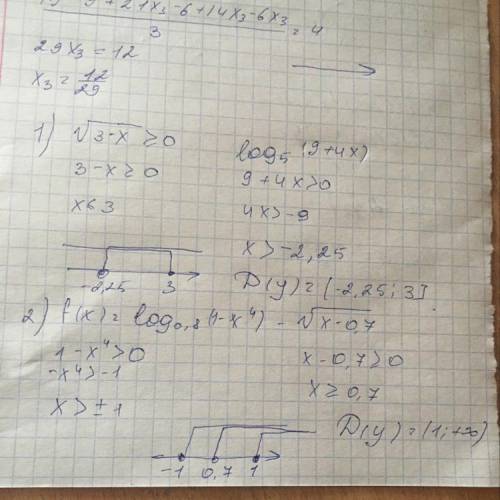 9+21x₃-6+14x₃-6x₃
3
= 4
29x₃ = 12
x₃ = 12/29
1) √(3-x) ≥ 0
log₅(9+4x)
3-x ≥ 0
9+4x>0
x ≤ 3
4x>-9
x>-2,25
-2,25 3
D(y) = (-2,25; 3].
2) f(x) = log₀,₈(1-x⁴) - √(x-0,7)
1-x⁴>0
x-0,7 ≥ 0
-x⁴>-1
x ≥ 0,7
x > ±1
D(y) = (1; +∞)
-1 0,7 1